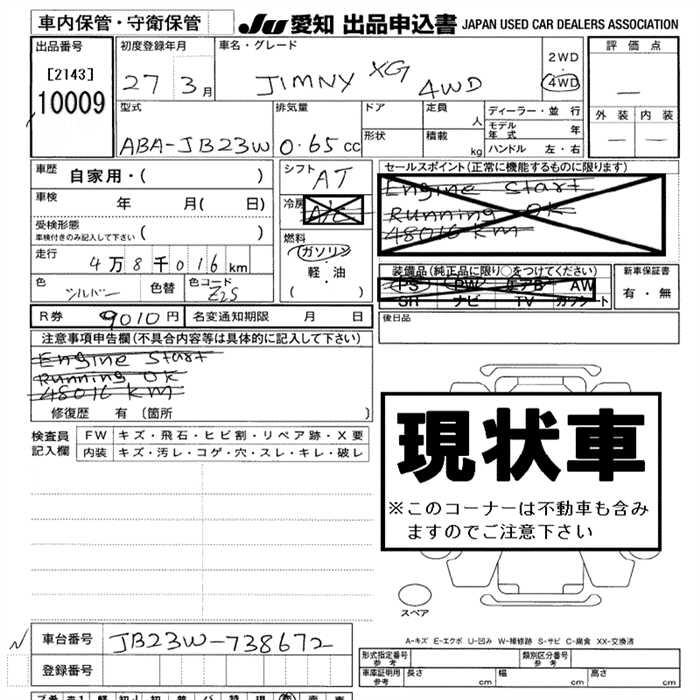 車内保管・守衛保管
JU 愛知 出品申込書 JAPAN USED CAR DEALERS ASSOCIATION
出品番号
[2143]
10009
初度登録年月
27 3月
車名・グレード
JIMNY XG 4WD
2WD
・
4WD
評価点
—
外装 内装
— —
型式
ABA-JB23W
排気量
0.65 cc
ドア
形状
定員
人
積載
kg
ディーラー・並行
モデル年式 年
ハンドル 左・右
車歴
自家用・( )
車検 年 月( 日)
受検形態
車検付きのみ記入して下さい ( )
走行
4万8千016km
色 シルバー 色替 色コード Z2S
シフト
AT
冷房
A/C
燃料
ガソリン
・
軽・油
( )
セールスポイント(正常に機能するものに限ります)
Engine Start
Running OK
48016 KM
装備品(純正品に限り○をつけてください)
PS PW エアB AW
SR ナビ TV カワシート
新車保証書
有・無
R券 9010円 名変通知期限 月 日
後日品
注意事項申告欄(不具合内容等は具体的に記入して下さい)
Engine Start
Running OK
48016 KM
修復歴 有〔箇所 〕
検査員
記入欄
FW キズ・飛石・ヒビ割・リペア跡・X要
内装 キズ・汚レ・コゲ・穴・スレ・キレ・破レ
現状車
※このコーナーは不動車も含み
ますのでご注意下さい
スペア
A-キズ E-エクボ U-凹み W-補修跡 S-サビ C-腐食 XX-交換済
車台番号 JB23W-738672
登録番号
形式指定番号
参考
類別区分番号
参考
車庫証明用
参考
長さ cm 幅 cm 高さ cm